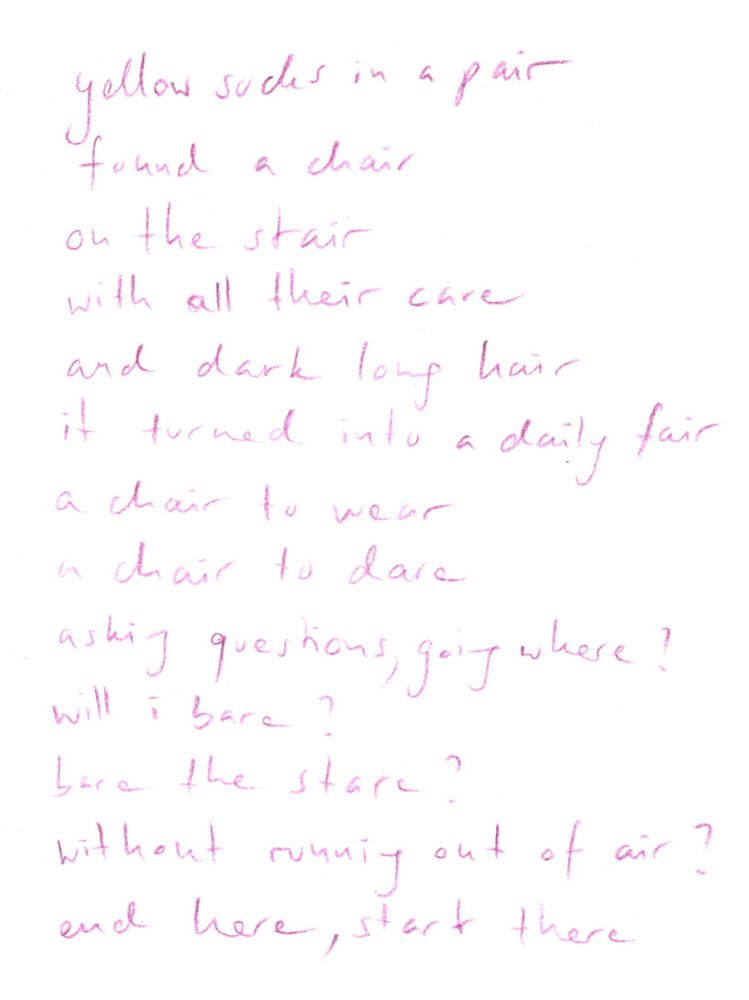 yellow socks in a pair
found a chair
on the stair
with all their care
and dark long hair
it turned into a daily fair
a chair to wear
a chair to dare
asking questions, going where?
will i bare?
bare the stare?
without running out of air?
end here, start there